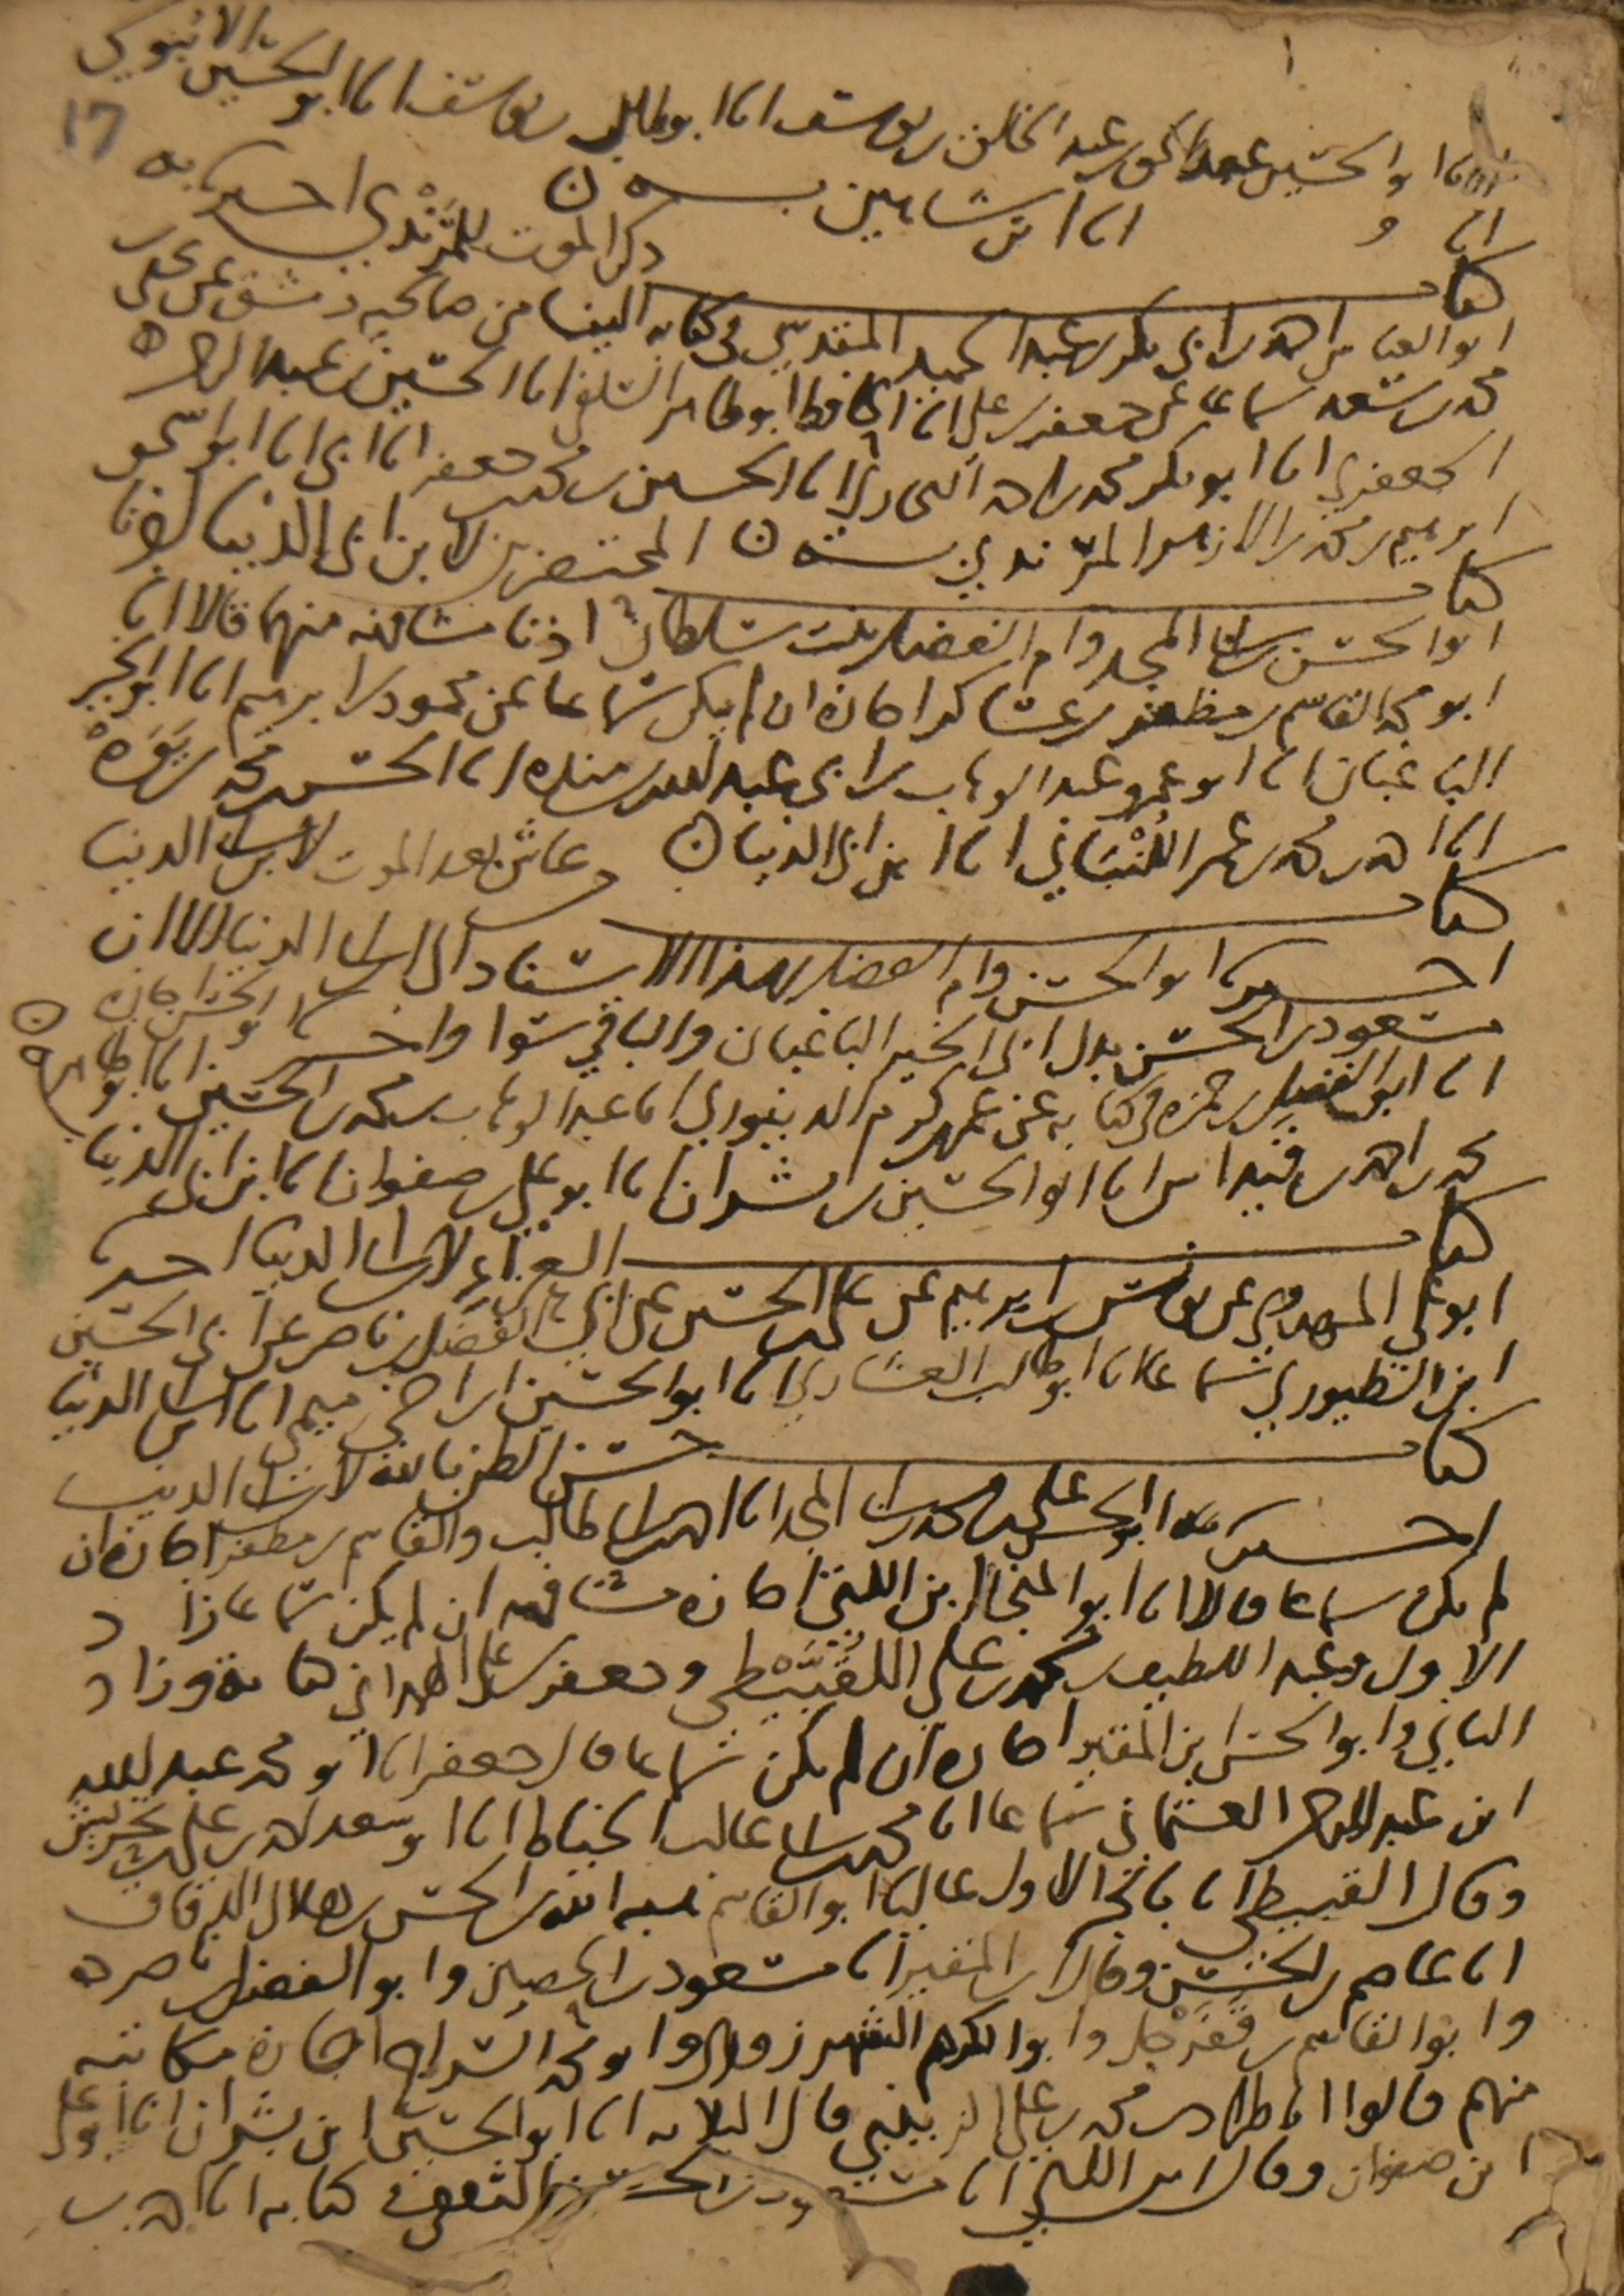 انا ابو الحسين عبد الحق بن عبد الخالق بن يوسف انا ابو طالب بن يوسف انا ابو الحسين الانبوسي
انا ابن شاهين به ن
كتاب ذكر الموت للمرندي اخبرنا به
ابو العباس احمد بن ابي بكر بن عبد الحميد المقدسي في كتابه الينا من صالحية دمشق عن محمد بن
محمد بن سعد سماعا عن جعفر بن علي انا الحافظ ابو طاهر السلفي انا الحسين بن عبد الواحد
انا ابو بكر محمد بن احمد انا الحسين بن محمد بن جعفر انا ابي انا ابو اسحق
ابرهيم بن محمد بن الازهر المرندي به ن المحتضرين لابن ابي الدنيا اخبرنا
كتاب
ابو الحسن بن ابي المجد وام الفضل بنت سلطان اذنا مشافهة منهما قالا انا
ابو محمد القاسم بن مظفر بن عساكر اجازة ان لم يكن سماعا عن محمود بن ابرهيم انا ابو الخير
الباغبان انا ابو عمرو عبد الوهاب بن ابي عبد الله بن منده انا الحسن بن محمد بن يوه
انا احمد بن محمد بن عمر اللنباني انا ابن ابي الدنيا ن
كتاب من عاش بعد الموت لابن ابي الدنيا
اخبرنا ابو الحسن وام الفضل بهذا الاسناد الى ابن ابي الدنيا الا ان
مسعود بن الحسن بدل ابي الخير الباغبان والباقي سوا واخبرنا ابو الحسن اجازة
انا ابو الفضل بن حمزة في كتابه عن عمر بن كرم الدينوري انا عبد الوهاب بن محمد بن الحسين انا ابو طاهر
محمد بن احمد بن قيداس انا ابو الحسين بن بشران انا ابو علي بن صفوان انا ابن ابي الدنيا
كتاب العزاء لابن ابي الدنيا اخبرنا
ابو علي المهدوي عن يونس بن ابرهيم عن علي بن الحسين عن ابي الفضل بن ناصر عن ابي الحسين
ابن الطيوري سماعا انا ابو طالب العشاري انا ابو الحسين ابن اخي ميمي انا ابن ابي الدنيا
كتاب حسن الظن بالله لابن ابي الدنيا
اخبرنا ابو الحسن علي بن محمد بن ابي المجد انا احمد بن ابي طالب والقاسم بن مظفر اجازة ان
لم يكن سماعا قالا انا ابو المنجا ابن اللتي اجازة مشافهة ان لم يكن سماعا زاد
الاول وعبد اللطيف بن محمد بن علي القبيطي وجعفر بن علي الهمداني كتابة وزاد
الثاني وابو الحسن ابن المقير اجازة ان لم يكن سماعا قال جعفر انا ابو محمد عبد الله
ابن عبد الرحمن العثماني سماعا انا محمد بن ابي غالب الخياط انا ابو سعد احمد بن علي بن تحريش
وقال القبيطي انا باتجر الاول عاليا ابو القاسم هبة الله بن الحسن بن هلال الدقاق
انا عاصم بن الحسن وقال ابن المقير انا مسعود بن الحصين وابو الفضل بن ناصر
وابو القاسم بن قفرجل وابو الكرم الشهرزوري وابو محمد السراج اجازة مكاتبة
منهم قالوا انا طراد بن محمد بن علي الزينبي قال الثلاثة انا ابو الحسين ابن بشران انا ابو علي
ابن صفوان وقال ابن اللتي انا مسعود بن الحسن الثقفي في كتابه انا احمد بن